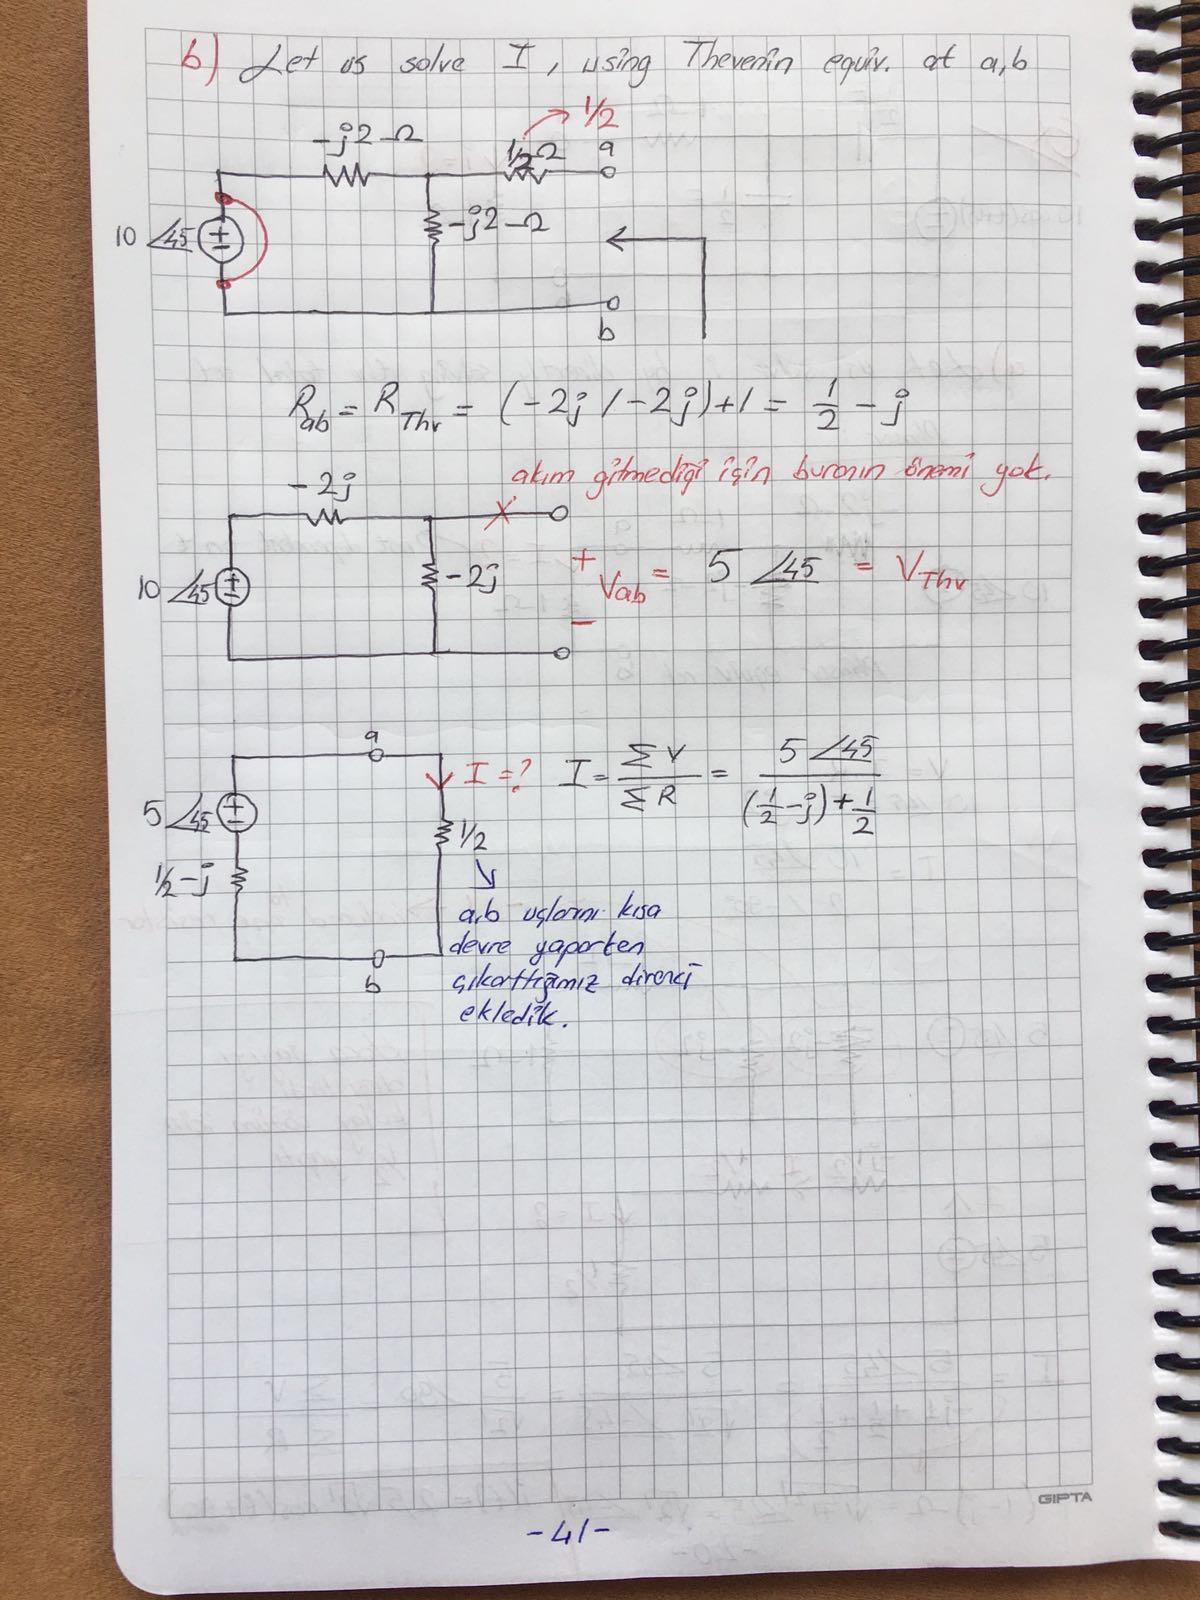 b) Let us solve I, using Thevenin equiv. at a,b
1/2
-j2-Ω
1/2Ω
a
10 ∠45
+
-j2-Ω
b
Rab = RThr = (-2j / -2j)+1 = 1/2 - j
akım gitmediği için buranın önemi yok.
-2j
x
10 ∠45
+
-2j
+
Vab = 5 ∠45 = VThr
-
a
I=? I = ΣV/ΣR = 5 ∠45/((1/2-j)+1/2)
5 ∠45
+
1/2
1/2-j
a,b uçlarını kısa
devre yaparken
çıkarttığımız direnci
ekledik.
b
GIPTA
-41-